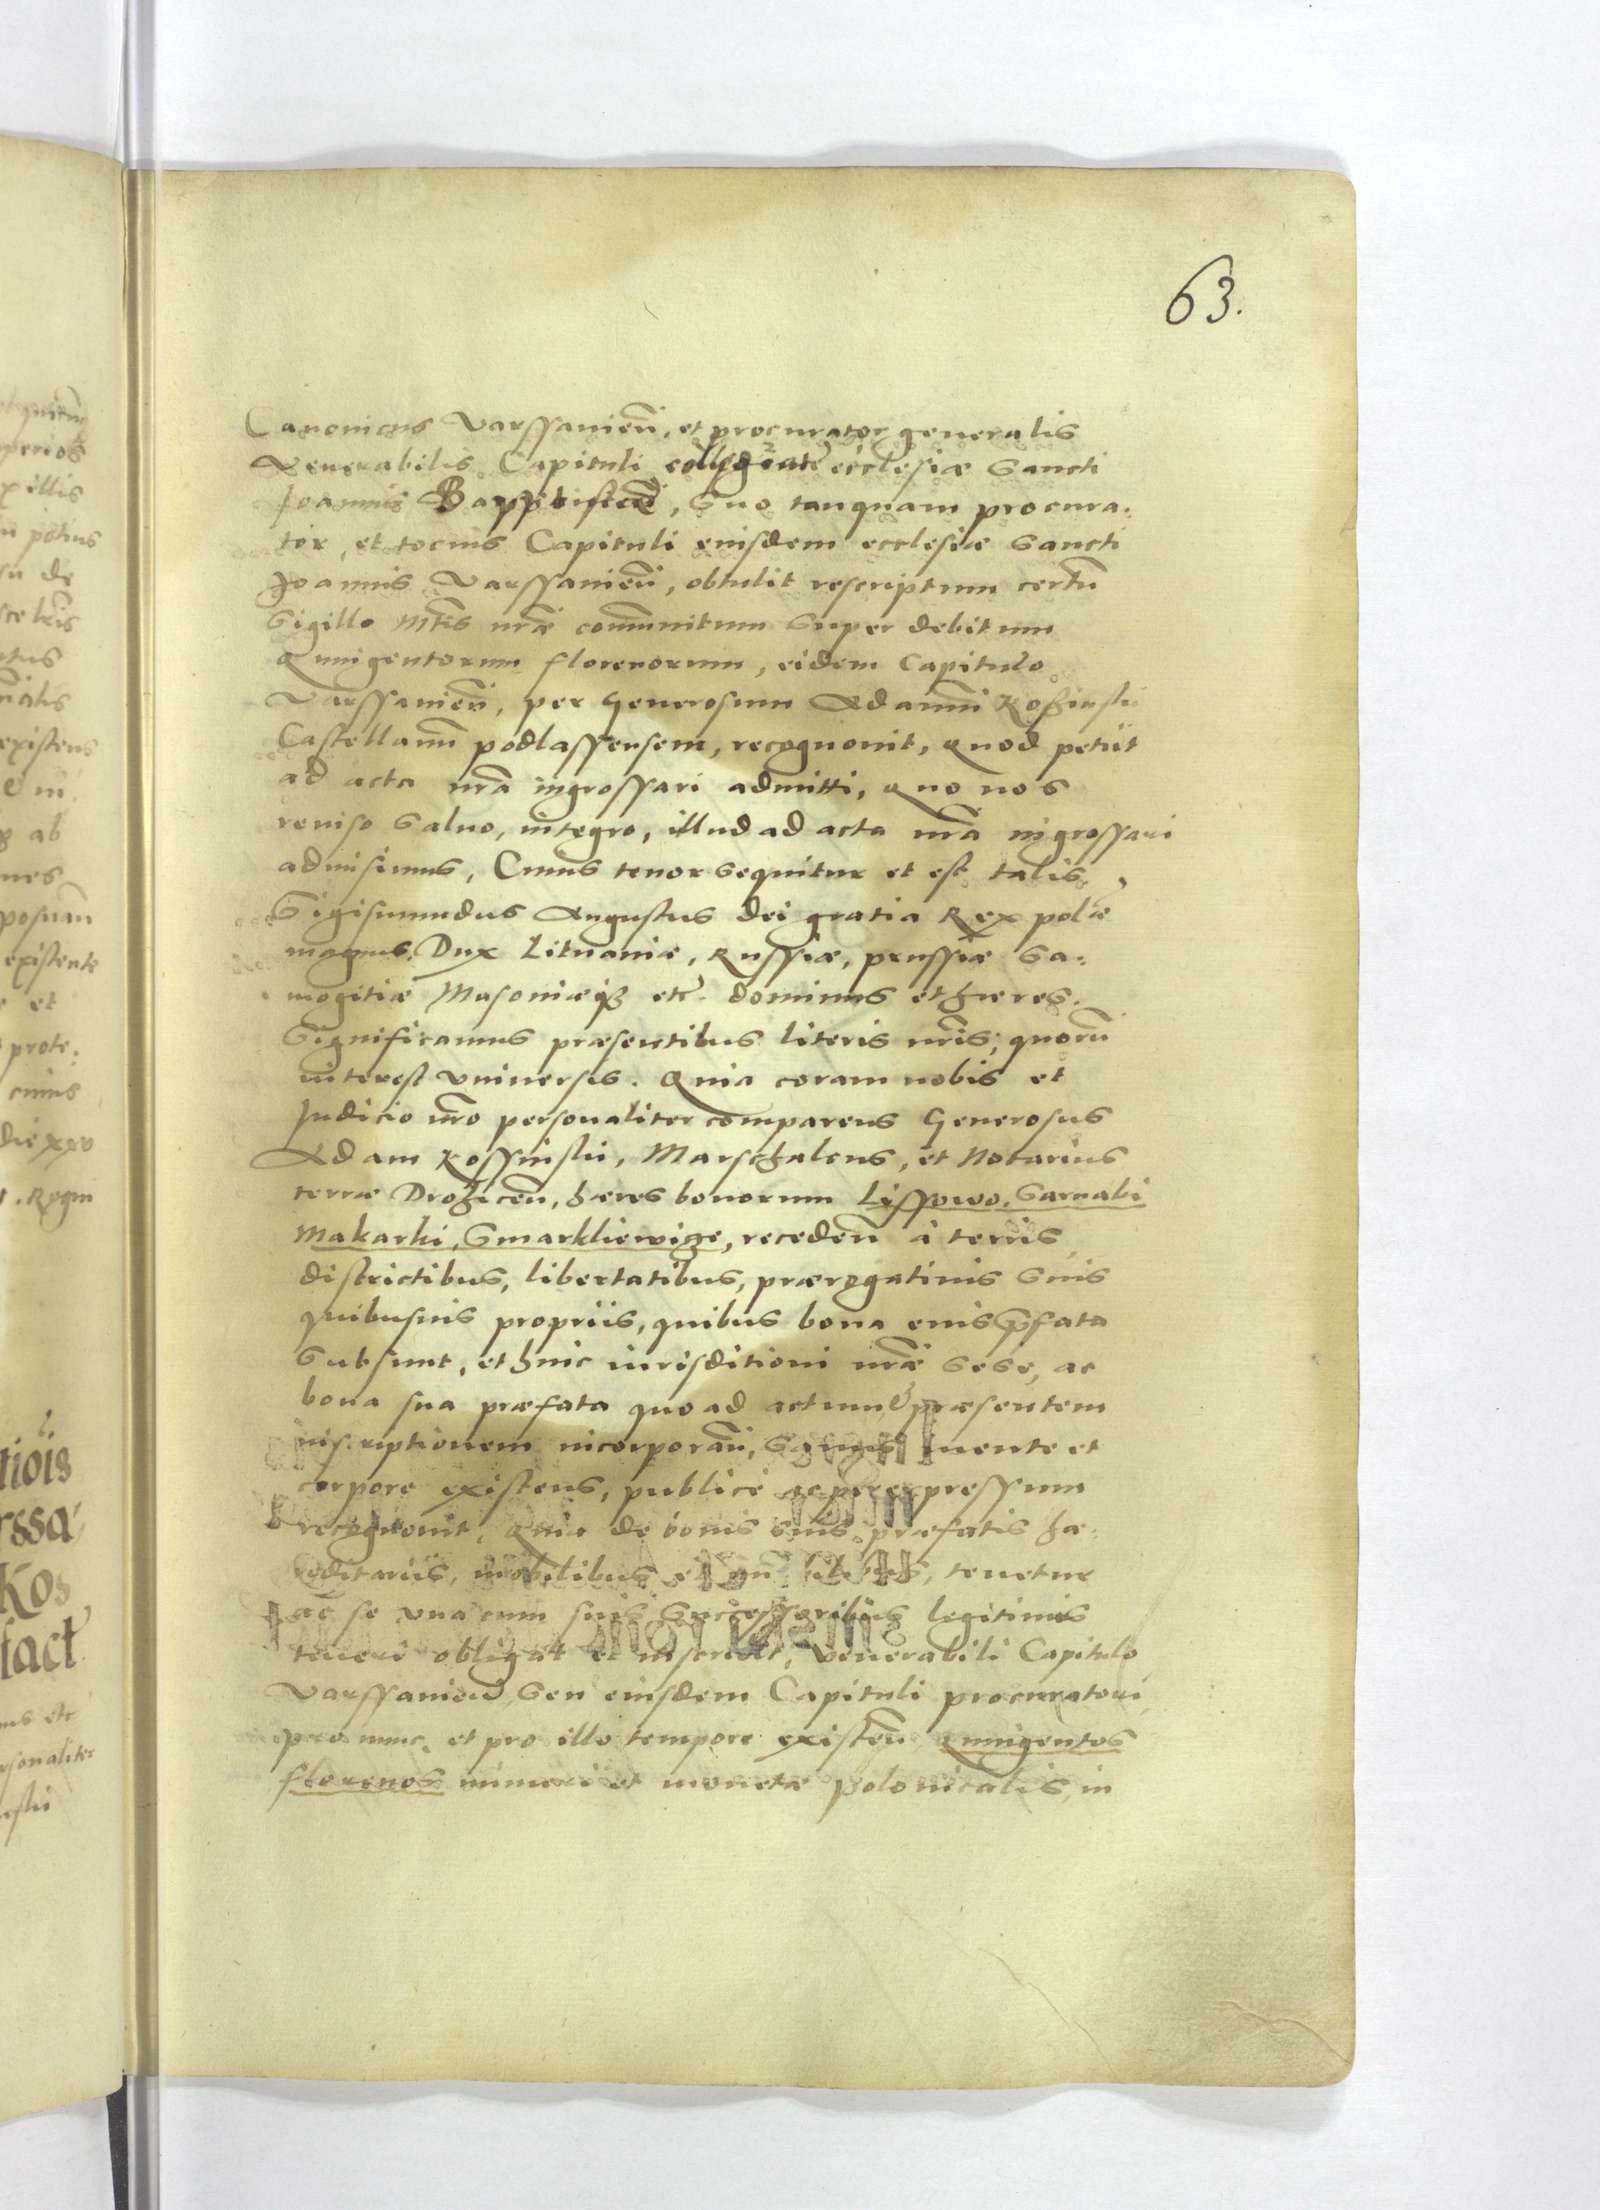 63.
Canonicus Varssavien̄, et procurator generalis
Venerabilis Capituli collegiatę ecclesiæ Sancti
Joannis Bapptistæ, Suo tanquam procura-
tor, et tocius Capituli eiusdem ecclesiæ Sancti
Joannis Varssavien̄, obtulit rescriptum certū
Sigillo Mtis nr̄æ com̄unitum Super debitum
Quingentorum florenorum, eidem Capitulo
Varssavien̄, per Generosum Adamū Kosinski
Castellanū podlassensem, recognovit, Quod petiit
ad acta nr̄a ingrossari admitti, Quo nos
reuiso Saluo, integro, illud ad acta nr̄a ingrossari
admisimus, Cuius tenor Sequitur et est talis,
Sigismundus Augustus dei gratia Rex polæ
magnus Dux Lituaniæ, Russiæ, prussiæ Sa-
mogitiæ Masoviæq3 etc̄. dominus et hæres.
Significamus præsentibus literis nr̄is, quorū
interest Vniversis. Quia coram nobis et
Judicio nr̄o personaliter comparens Generosus
Adam Kossinski, Marschalcus, et Notarius
terræ Drohicen̄, hæres bonorum Lyssowo, Sarnaki
Makarki, Smarkliewicze, receden̄ à terris
districtibus, libertatibus, prærogatiuis Suis
quibusuis propriis, quibus bona eius p̄fata
Subsunt, et huic iurisditioni nr̄æ Sese, ac
bona sua præfata quo ad actum præsentem
inscriptionem incorporan̄, Sanus mente et
corpore existens, publicè ac per expressum
recognovit, Quia de bonis suis præfatis hæ-
reditariis, mobilibus et tenetur
ac se vna cum suis Successoribus legitimis
teneri obligat et inscribit, Venerabili Capitulo
Varssavien̄ Seu eiusdem Capituli procuratori
pro nunc, et pro illo tempore existen̄ Quingentos
florenos numeri et monetæ polonicalis, in